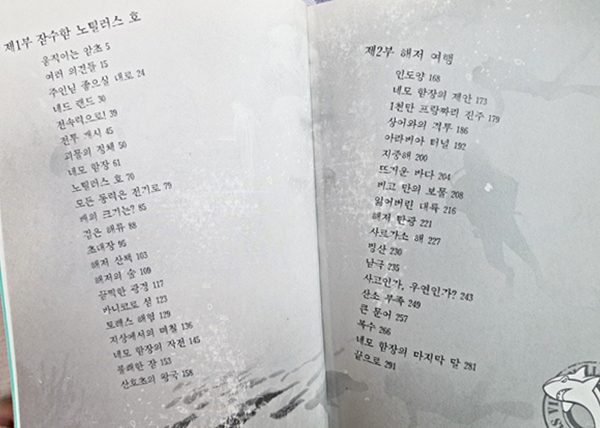 제1부 잠수함 노틸러스 호
움직이는 암초 5
여러 의견들 15
주인님 좋으실 대로 24
네드 랜드 30
전속력으로! 39
전투 개시 45
괴물의 정체 50
네모 함장 61
노틸러스 호 70
모든 동력은 전기로 79
배의 크기는? 85
검은 해류 88
초대장 95
해저 산책 103
해저의 숲 109
끔찍한 광경 117
바니코로 섬 123
토레스 해협 129
지상에서의 며칠 136
네모 함장의 작전 145
불쾌한 잠 153
산호초의 왕국 158
제2부 해저 여행
인도양 168
네모 함장의 제안 173
1천만 프랑짜리 진주 179
상어와의 격투 186
아라비아 터널 192
지중해 200
뜨거운 바다 204
비고 만의 보물 208
잃어버린 대륙 216
해저 탄광 221
사르가소 해 227
빙산 230
남극 235
사고인가, 우연인가? 243
산소 부족 249
큰 문어 257
복수 266
네모 함장의 마지막 말 281
끝으로 291